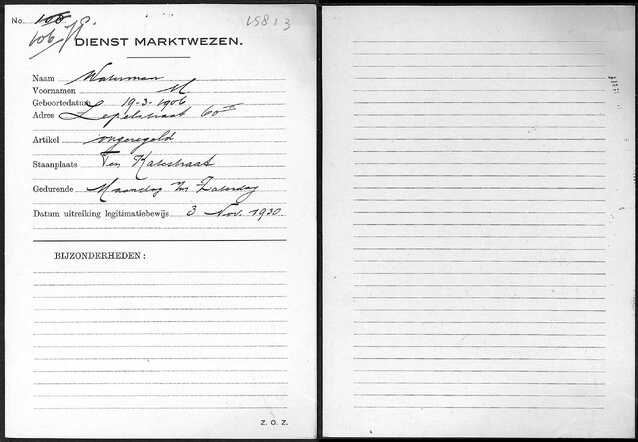 No. 100 15813
106
DIENST MARKTWEZEN.
Naam Waterman
Voornamen M
Geboortedatum 19-3-1906
Adres Lepelstraat 60
Artikel ongeregeld
Staanplaats Ten Katestraat
Gedurende Maandag t/m Zaterdag
Datum uitreiking legitimatiebewijs 3 Nov. 1930.
BIJZONDERHEDEN:
Z. O. Z.